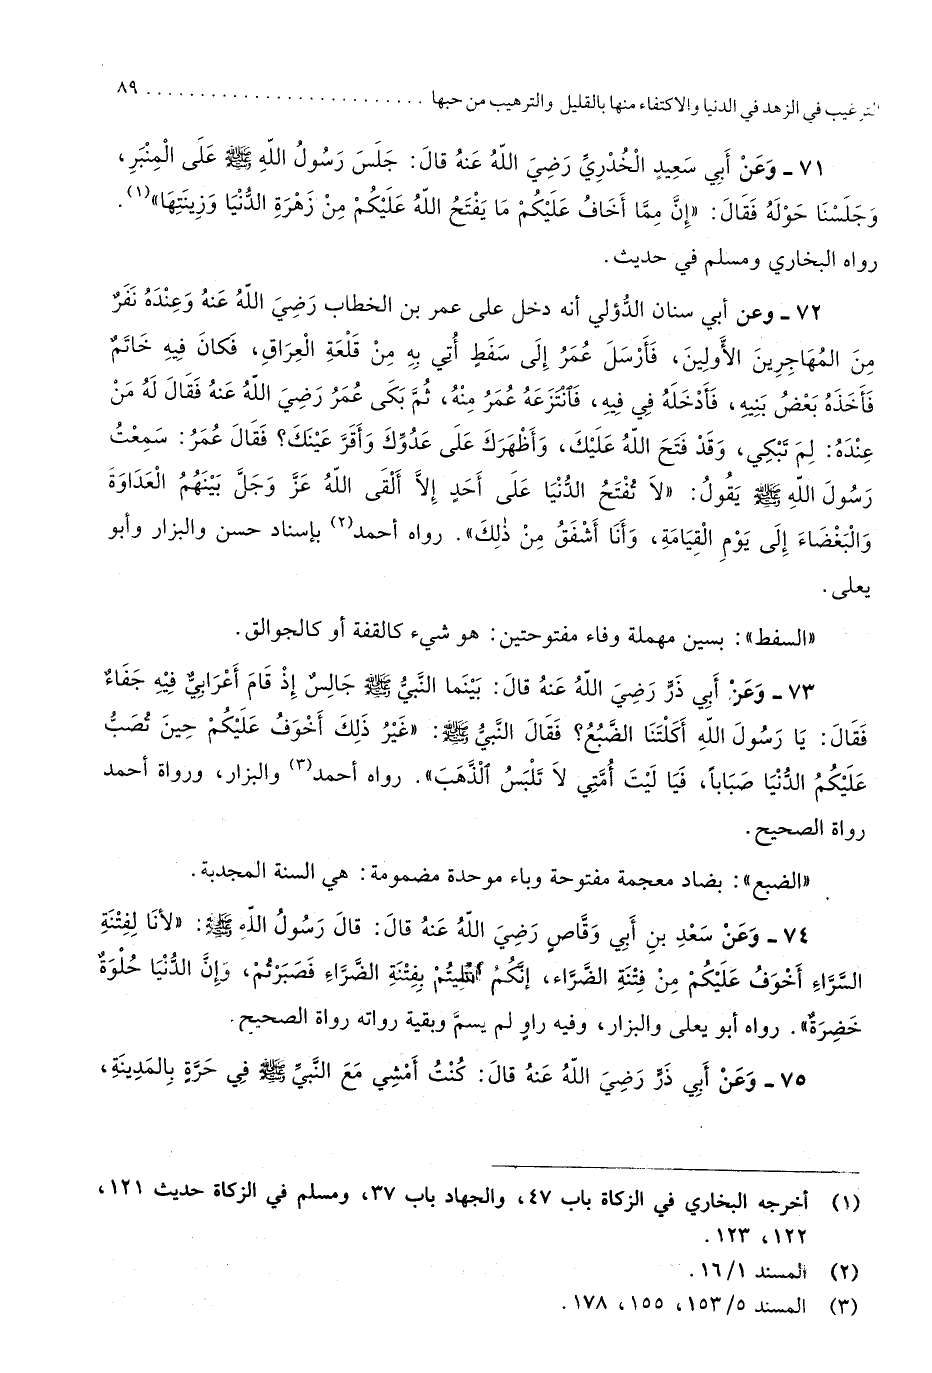 الترغيب في الزهد في الدنيا والاكتفاء منها بالقليل والترهيب من حبها .......................... ٨٩
٧١ ـ وَعَنْ أَبِي سَعِيدٍ الْخُدْرِيِّ رَضِيَ اللّهُ عَنْهُ قالَ: جَلَسَ رَسُولُ اللّهِ ﷺ عَلَى الْمِنْبَرِ،
وَجَلَسْنَا حَوْلَهُ فَقَالَ: «إِنَّ مِمَّا أَخَافُ عَلَيْكُمْ مَا يَفْتَحُ اللّهُ عَلَيْكُمْ مِنْ زَهْرَةِ الدُّنْيَا وَزِينَتِهَا»(١).
رواه البخاري ومسلم في حديث.
٧٢ ـ وعن أبي سنان الدُّؤلي أنه دخل على عمر بن الخطاب رَضِيَ اللّهُ عَنْهُ وَعِنْدَهُ نَفَرٌ
مِنَ المُهَاجِرِينَ الأَوَّلِينَ، فَأَرْسَلَ عُمَرُ إِلَى سَفَطٍ أُتِي بِهِ مِنْ قَلْعَةِ الْعِرَاقِ، فَكانَ فِيهِ خَاتَمٌ
فَأَخَذَهُ بَعْضُ بَنِيهِ، فَأَدْخَلَهُ فِي فِيهِ، فَانْتَزَعَهُ عُمَرُ مِنْهُ، ثُمَّ بَكَى عُمَرُ رَضِيَ اللّهُ عَنْهُ فَقَالَ لَهُ مَنْ
عِنْدَهُ: لِمَ تَبْكِي، وَقَدْ فَتَحَ اللّهُ عَلَيْكَ، وَأَظْهَرَكَ عَلَى عَدُوِّكَ وَأَقَرَّ عَيْنَكَ؟ فَقَالَ عُمَرُ: سَمِعْتُ
رَسُولَ اللّهِ ﷺ يَقُولُ: «لاَ تُفْتَحُ الدُّنْيَا عَلَى أَحَدٍ إِلاَّ أَلْقَى اللّهُ عَزَّ وَجَلَّ بَيْنَهُمُ الْعَدَاوَةَ
وَالْبَغْضَاءَ إِلَى يَوْمِ الْقِيَامَةِ، وَأَنَا أَشْفَقُ مِنْ ذٰلِكَ». رواه أحمد(٢) بإسناد حسن والبزار وأبو
يعلى.
«السفط»: بسين مهملة وفاء مفتوحتين: هو شيء كالقفة أو كالجوالق.
٧٣ ـ وَعَنْ أَبِي ذَرٍّ رَضِيَ اللّهُ عَنْهُ قالَ: بَيْنَما النَّبِيُّ ﷺ جَالِسٌ إِذْ قَامَ أَعْرَابِيٌّ فِيْهِ جَفَاءٌ
فَقَالَ: يَا رَسُولَ اللّهِ أَكَلَتْنَا الضَّبُعُ؟ فَقَالَ النَّبِيُّ ﷺ: «غَيْرُ ذَلِكَ أَخْوَفُ عَلَيْكُمْ حِينَ تُصَبُّ
عَلَيْكُمُ الدُّنْيَا صَبَاباً، فَيَا لَيْتَ أُمَّتِي لاَ تَلْبَسُ الذَّهَبَ». رواه أحمد(٣) والبزار، ورواة أحمد
رواة الصحيح.
«الضبع»: بضاد معجمة مفتوحة وباء موحدة مضمومة: هي السنة المجدبة.
٧٤ ـ وَعَنْ سَعْدِ بنِ أَبِي وَقَّاصٍ رَضِيَ اللّهُ عَنْهُ قالَ: قالَ رَسُولُ اللّهِ ﷺ: «لأَنَا لِفِتْنَةِ
السَّرَّاءِ أَخْوَفُ عَلَيْكُمْ مِنْ فِتْنَةِ الضَّرَّاءِ، إِنَّكُمُ ابْتُلِيتُمْ بِفِتْنَةِ الضَّرَّاءِ فَصَبَرْتُمْ، وَإِنَّ الدُّنْيَا حُلْوَةٌ
خَضِرَةٌ». رواه أبو يعلى والبزار، وفيه راوٍ لم يسمَّ وبقية رواته رواة الصحيح.
٧٥ ـ وَعَنْ أَبِي ذَرٍّ رَضِيَ اللّهُ عَنْهُ قالَ: كُنْتُ أَمْشِي مَعَ النَّبِيِّ ﷺ فِي حَرَّةٍ بِالمَدِينَةِ،
(١) أخرجه البخاري في الزكاة باب ٤٧، والجهاد باب ٣٧، ومسلم في الزكاة حديث ١٢١،
١٢٢، ١٢٣.
(٢) المسند ١/١٦.
(٣) المسند ٥/١٥٣، ١٥٥، ١٧٨.